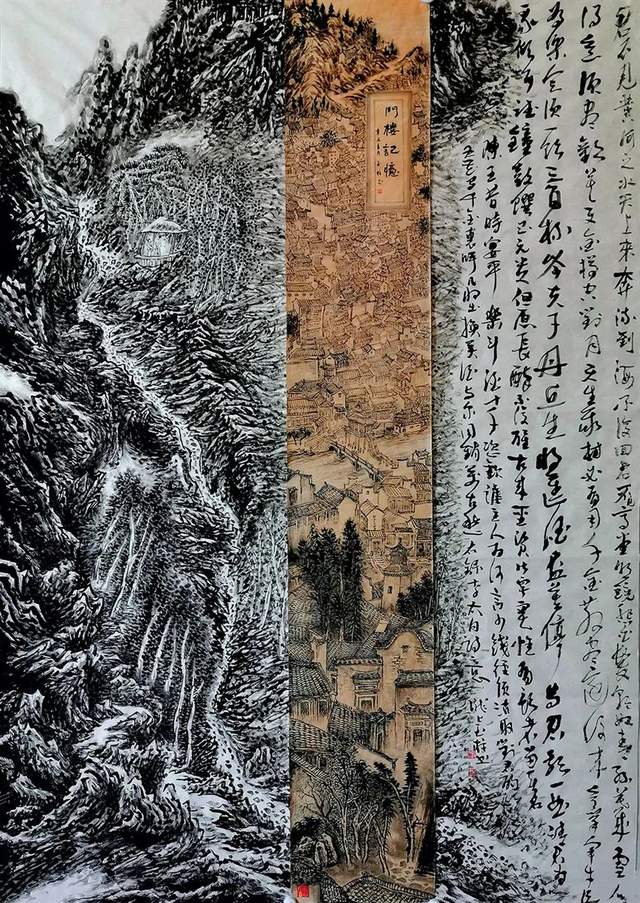 君不見黄河之水天上来奔流到海不復回君不見高堂明鏡悲白髮朝如青絲暮成雪人生
得意須盡歡莫使金樽空對月天生我材必有用千金散盡還復来烹羊宰牛且
為樂會須一飲三百杯岑夫子丹丘生將進酒杯莫停與君歌一曲請君為
我傾耳聽鐘鼓饌玉足貴但願長醉不復醒古来聖賢皆寂寞惟有飲者留其名
陳王昔時宴平樂斗酒十千恣歡謔主人何為言少錢徑須沽取對君酌
五花馬千金裘呼兒將出換美酒與爾同銷萬古愁李太白詩
門樓記憶